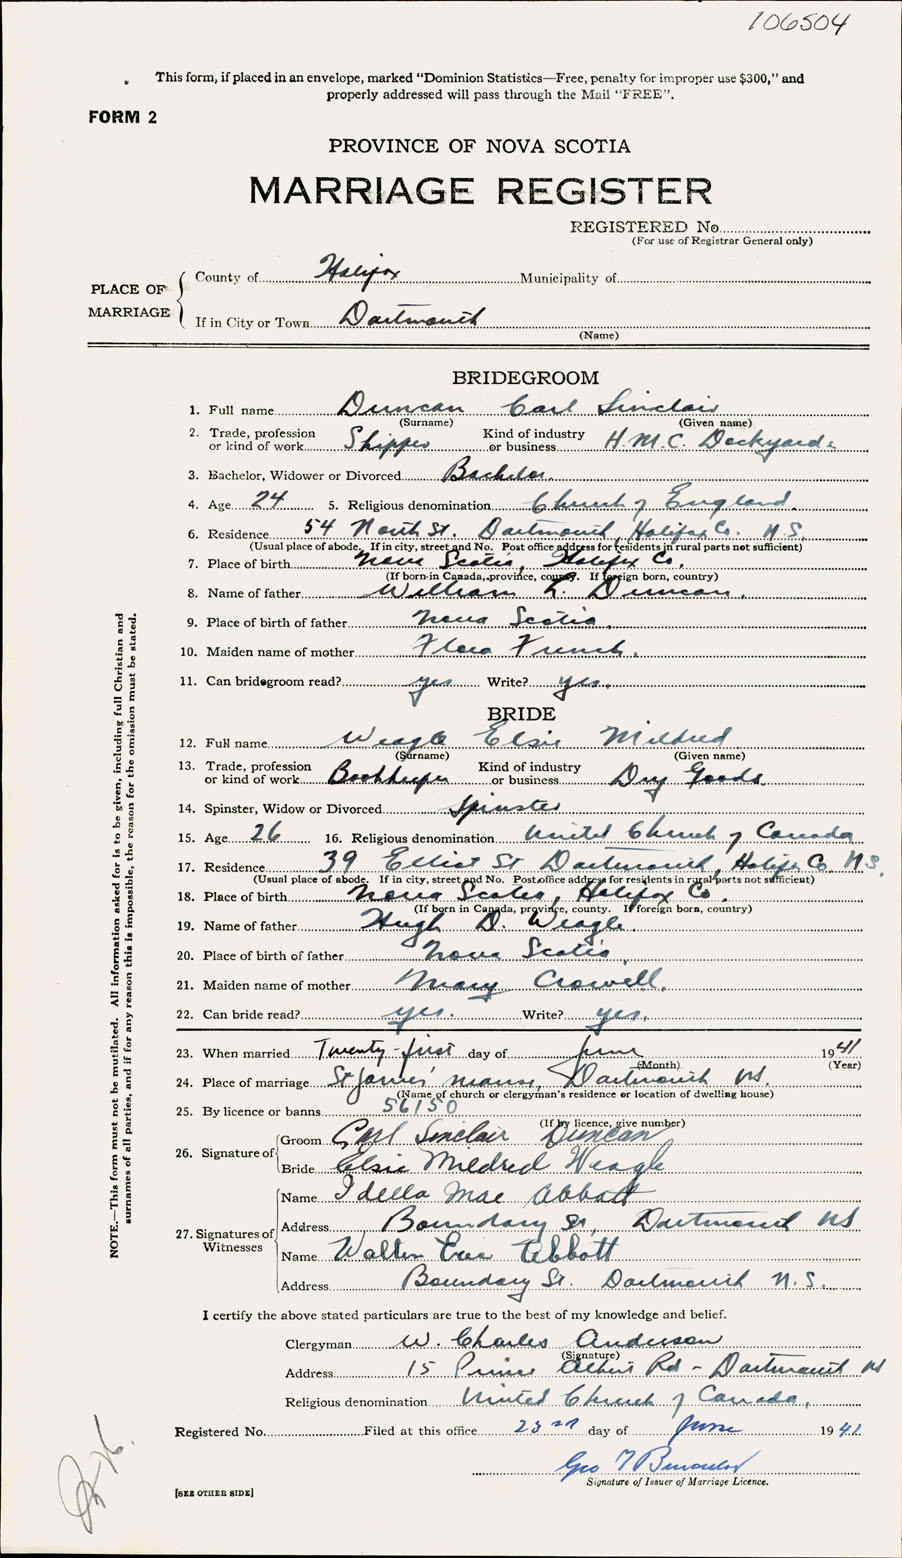 106504
This form, if placed in an envelope, marked “Dominion Statistics—Free, penalty for improper use $300,” and
properly addressed will pass through the Mail “FREE”.
FORM 2
PROVINCE OF NOVA SCOTIA
MARRIAGE REGISTER
REGISTERED No.
(For use of Registrar General only)
PLACE OF MARRIAGE
County of Halifax Municipality of
If in City or Town Dartmouth
(Name)
BRIDEGROOM
1. Full name Duncan Carl Sinclair
(Surname) (Given name)
2. Trade, profession or kind of work Shipper Kind of industry or business H.M.C. Dockyard.
3. Bachelor, Widower or Divorced Bachelor.
4. Age 24 5. Religious denomination Church of England.
6. Residence 54 North St. Dartmouth, Halifax Co. N.S.
(Usual place of abode. If in city, street and No. Post office address for residents in rural parts not sufficient)
7. Place of birth Nova Scotia, Halifax Co.
(If born in Canada, province, county. If foreign born, country)
8. Name of father William L. Duncan.
9. Place of birth of father Nova Scotia.
10. Maiden name of mother Flora French.
11. Can bridegroom read? yes Write? yes.
BRIDE
12. Full name Weagle Elsie Mildred
(Surname) (Given name)
13. Trade, profession or kind of work Bookkeeper Kind of industry or business Dry Goods.
14. Spinster, Widow or Divorced Spinster
15. Age 26 16. Religious denomination United Church of Canada
17. Residence 39 Elliot St Dartmouth, Halifax Co. N.S.
(Usual place of abode. If in city, street and No. Post office address for residents in rural parts not sufficient)
18. Place of birth Nova Scotia, Halifax Co.
(If born in Canada, province, county. If foreign born, country)
19. Name of father Hugh D. Weagle.
20. Place of birth of father Nova Scotia.
21. Maiden name of mother Mary Crowell.
22. Can bride read? yes. Write? yes.
23. When married Twenty-first day of June 1941
(Month) (Year)
24. Place of marriage St James' manse, Dartmouth NS.
(Name of church or clergyman's residence or location of dwelling house)
25. By licence or banns 56150
(If by licence, give number)
26. Signature of
Groom Carl Sinclair Duncan
Bride Elsie Mildred Weagle
27. Signatures of Witnesses
Name Idella Mae Abbott
Address Boundary St, Dartmouth NS
Name Walter Eric Abbott
Address Boundary St. Dartmouth N.S.
I certify the above stated particulars are true to the best of my knowledge and belief.
Clergyman W. Charles Anderson
(Signature)
Address 15 Prince Albert Rd - Dartmouth NS
Religious denomination United Church of Canada.
Registered No. Filed at this office 23rd day of June 1941
Geo
Signature of Issuer of Marriage Licence.
[SEE OTHER SIDE]
NOTE.—This form must not be mutilated. All information asked for is to be given, including full Christian and
surnames of all parties, and if for any reason this is impossible, the reason for the omission must be stated.